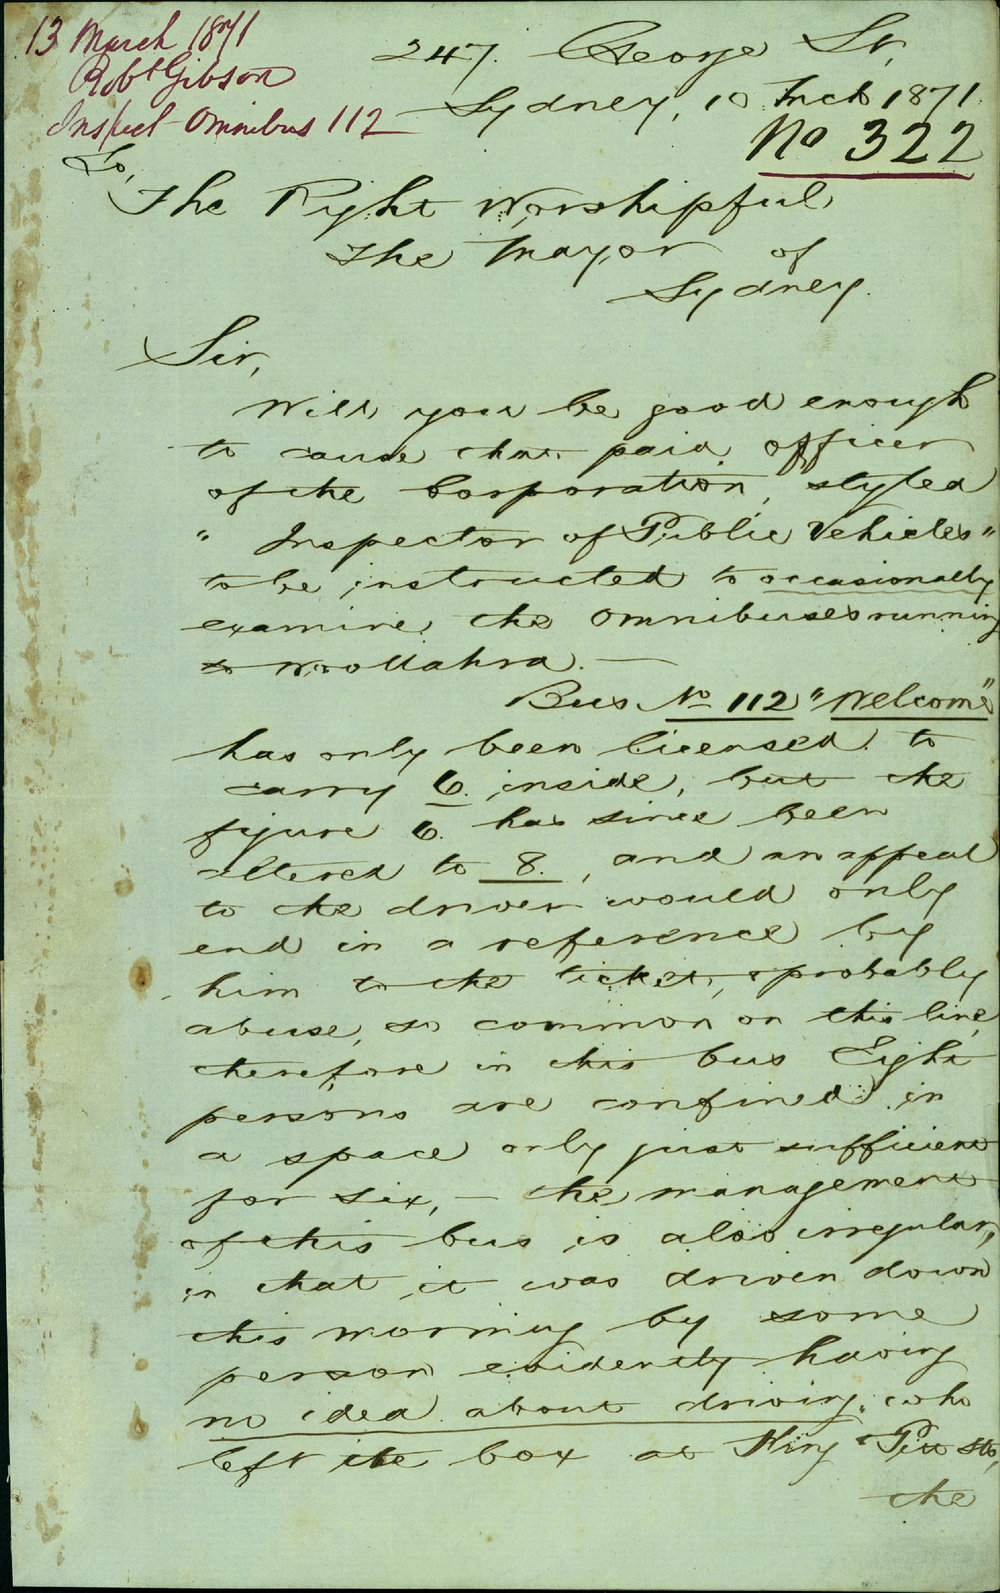 13 March 1871
Robt Gibson
Inspect Omnibus 112
247. George St,
Sydney, 10 Mch 1871
No 322
To,
The Right Worshipful
The Mayor of
Sydney.
Sir,
Will you be good enough
to cause that paid officer
of the Corporation, styled
"Inspector of Public Vehicles"
to be instructed to occasionally
examine the Omnibuses running
to Woollahra. —
Bus No 112 "Welcome"
has only been licensed to
carry 6. inside, but the
figure 6. has since been
altered to 8., and an appeal
to the driver would only
end in a reference by
him to the ticket, & probably
abuse, so common on this line,
therefore in this bus Eight
persons are confined in
a space only just sufficient
for six, — the management
of this bus is also irregular,
in that it was driven down
this morning by some
person evidently having
no idea about driving, who
left the box at King & Pitt Sts,
the